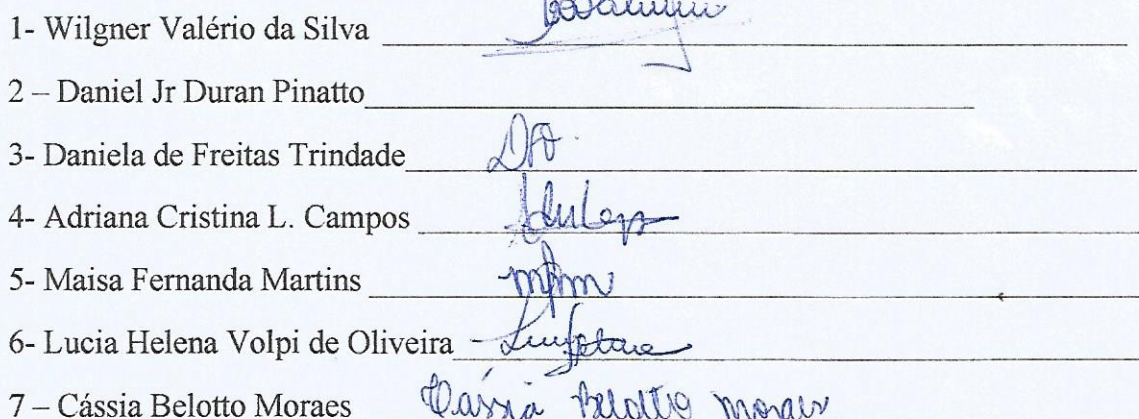 1- Wilgner Valério da Silva
2 – Daniel Jr Duran Pinatto
3- Daniela de Freitas Trindade
4- Adriana Cristina L. Campos
5- Maisa Fernanda Martins mfm
6- Lucia Helena Volpi de Oliveira
7 – Cássia Belotto Moraes Cássia Belotto Moraes